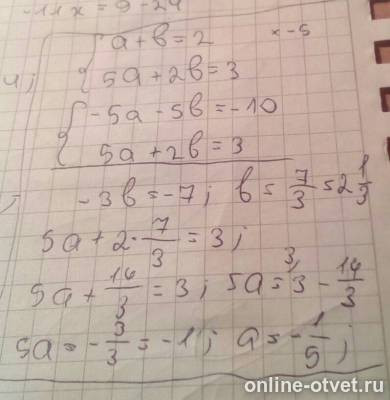 -11x = 9 - 24
4) a + b = 2 | x -5
5a + 2b = 3
-5a - 5b = -10
5a + 2b = 3
-3b = -7; b = 7/3 = 2 1/3
5a + 2 · 7/3 = 3;
5a + 14/3 = 3; 5a = 3 - 14/3
5a = - 3/3 = -1; a = - 1/5;
online-otvet.ru